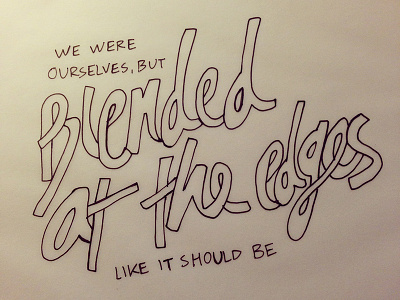 WE WERE
OURSELVES, BUT
Blended
at the edges
LIKE IT SHOULD BE